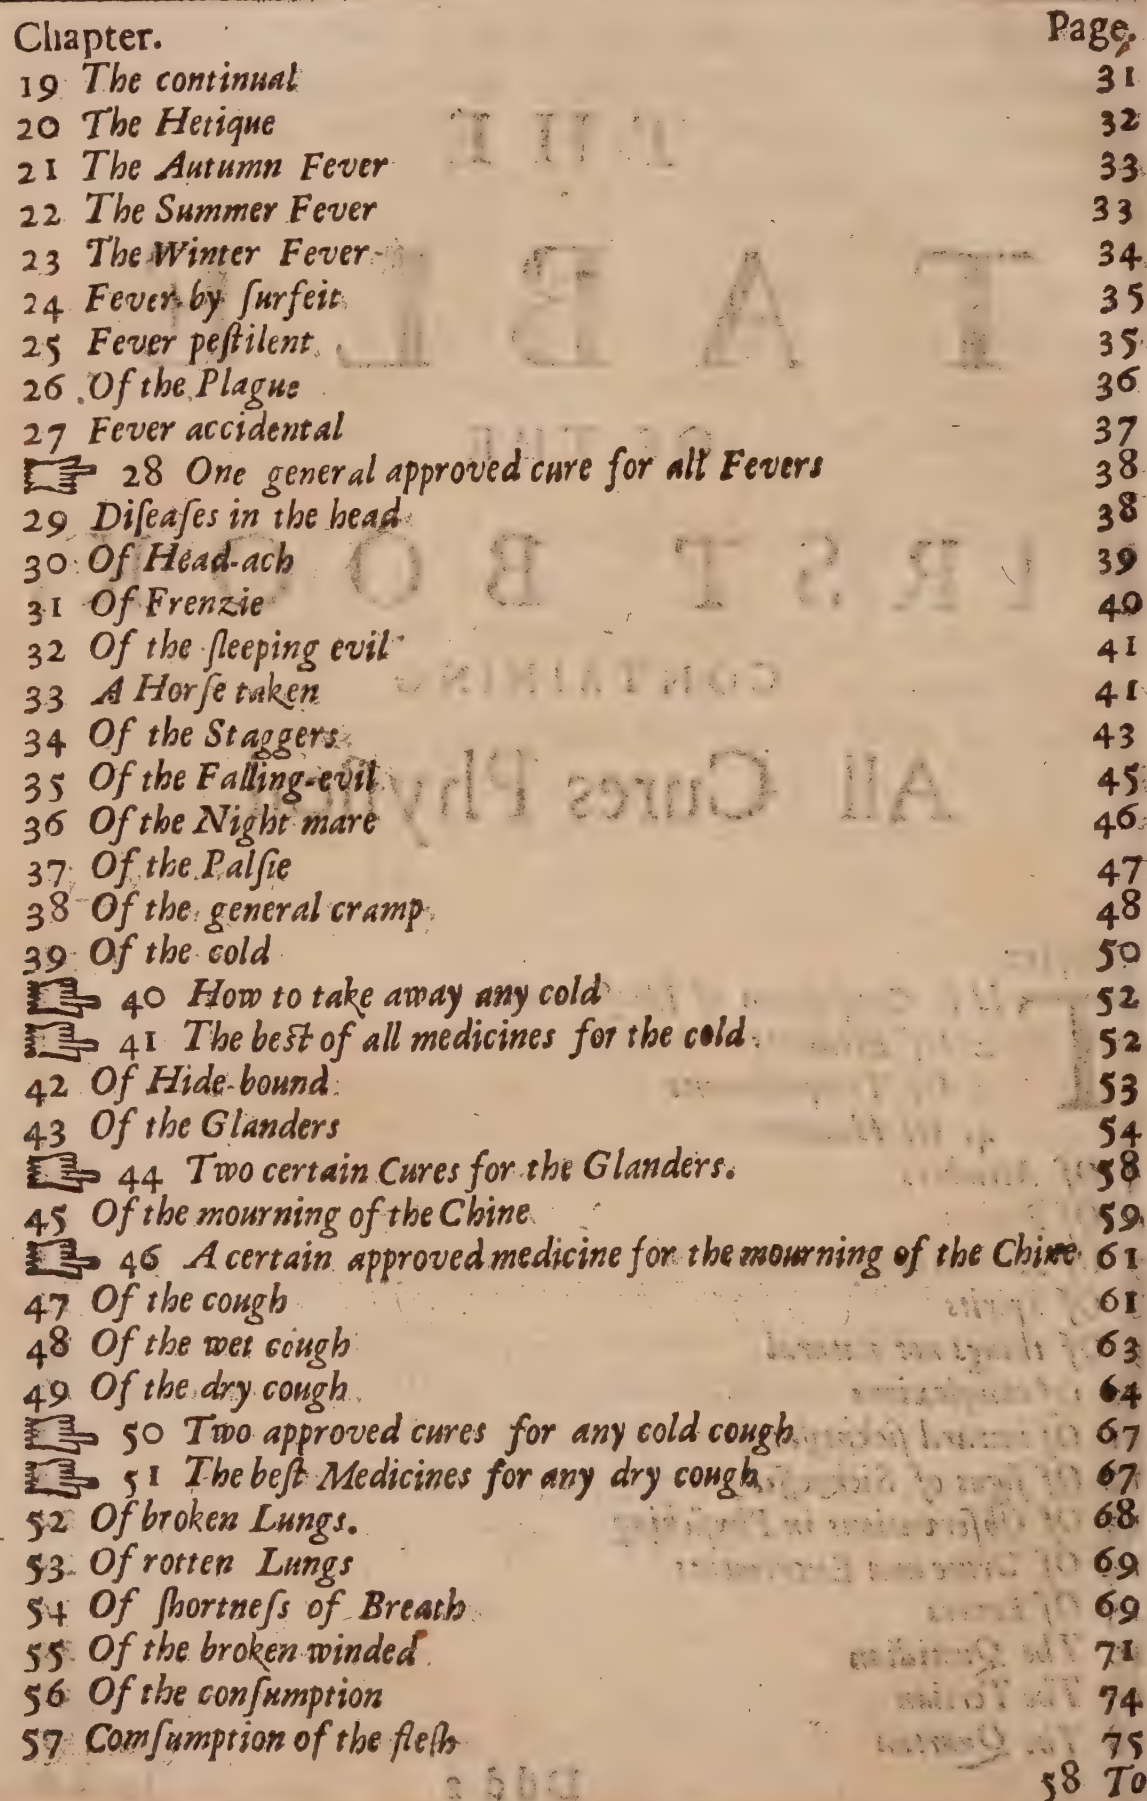 Chapter. Page.
19 The continual 31
20 The Hetique 32
21 The Autumn Fever 33
22 The Summer Fever 33
23 The Winter Fever 34
24 Fever by ſurfeit 35
25 Fever peſtilent 35
26 Of the Plague 36
27 Fever accidental 37
28 One general approved cure for all Fevers 38
29 Diſeaſes in the head 38
30 Of Head-ach 39
31 Of Frenzie 40
32 Of the ſleeping evil 41
33 A Horſe taken 41
34 Of the Staggers 43
35 Of the Falling-evil 45
36 Of the Night mare 46
37 Of the Palſie 47
38 Of the general cramp 48
39 Of the cold 50
40 How to take away any cold 52
41 The beſt of all medicines for the cold 52
42 Of Hide-bound 53
43 Of the Glanders 54
44 Two certain Cures for the Glanders. 58
45 Of the mourning of the Chine 59
46 A certain approved medicine for the mourning of the Chine 61
47 Of the cough 61
48 Of the wet cough 63
49 Of the dry cough 64
50 Two approved cures for any cold cough 67
51 The beſt Medicines for any dry cough 67
52 Of broken Lungs. 68
53 Of rotten Lungs 69
54 Of ſhortneſs of Breath 69
55 Of the broken winded 71
56 Of the conſumption 74
57 Comſumption of the fleſh 75
58 To